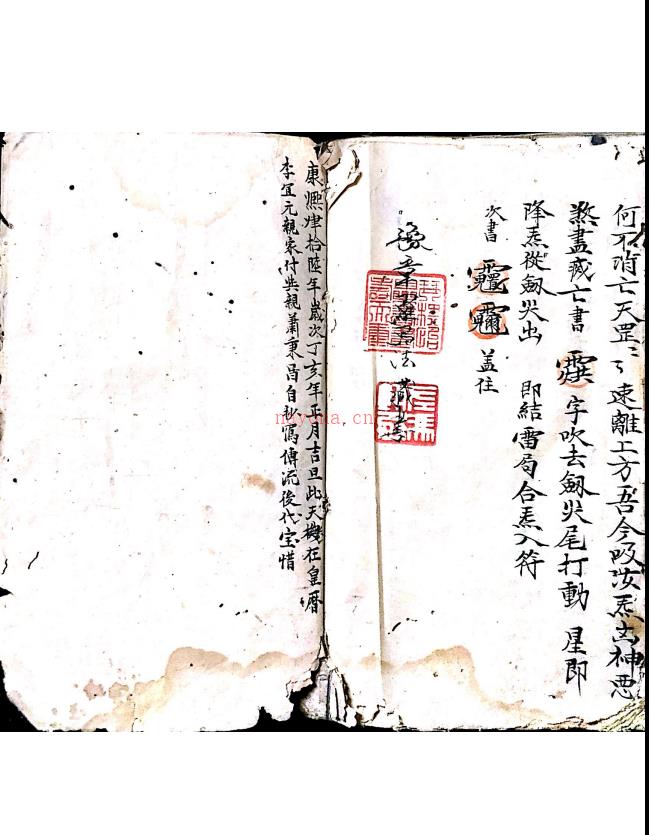 何不消亡天罡〻〻速離上方吾今吸汝炁凶神惡
煞盡藏亡書 字吹去劒尖尾打動 星即
降炁從劒尖出 即結雷局合炁入符
次書 蓋住
豫章 法
康熙肆拾陸年歲次丁亥年正月吉旦此天機在皇曆
李宜元親家付與親蕭秉昌自抄寫傳流後代宝惜